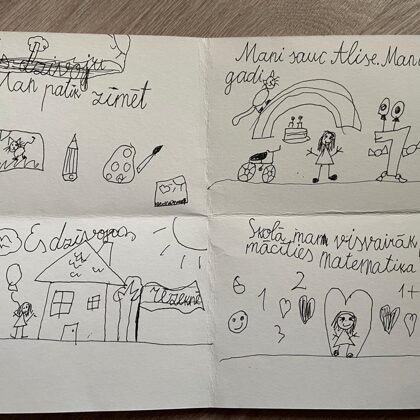 Es dzīvoju
Man patīk zīmēt
Mani sauc Alise. Man
gadi
7
Es dzīvoju
Skolā man visvairāk
mācīties
matemātika
6
1
2
3
1+